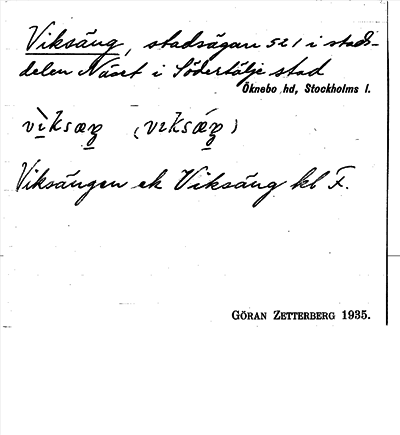 Viksäng, stadsägan 521 i stads-
delen Näset i Södertälje stad
Öknebo hd, Stockholms l.
Viksängen ek Viksäng kl F.
GÖRAN ZETTERBERG 1935.